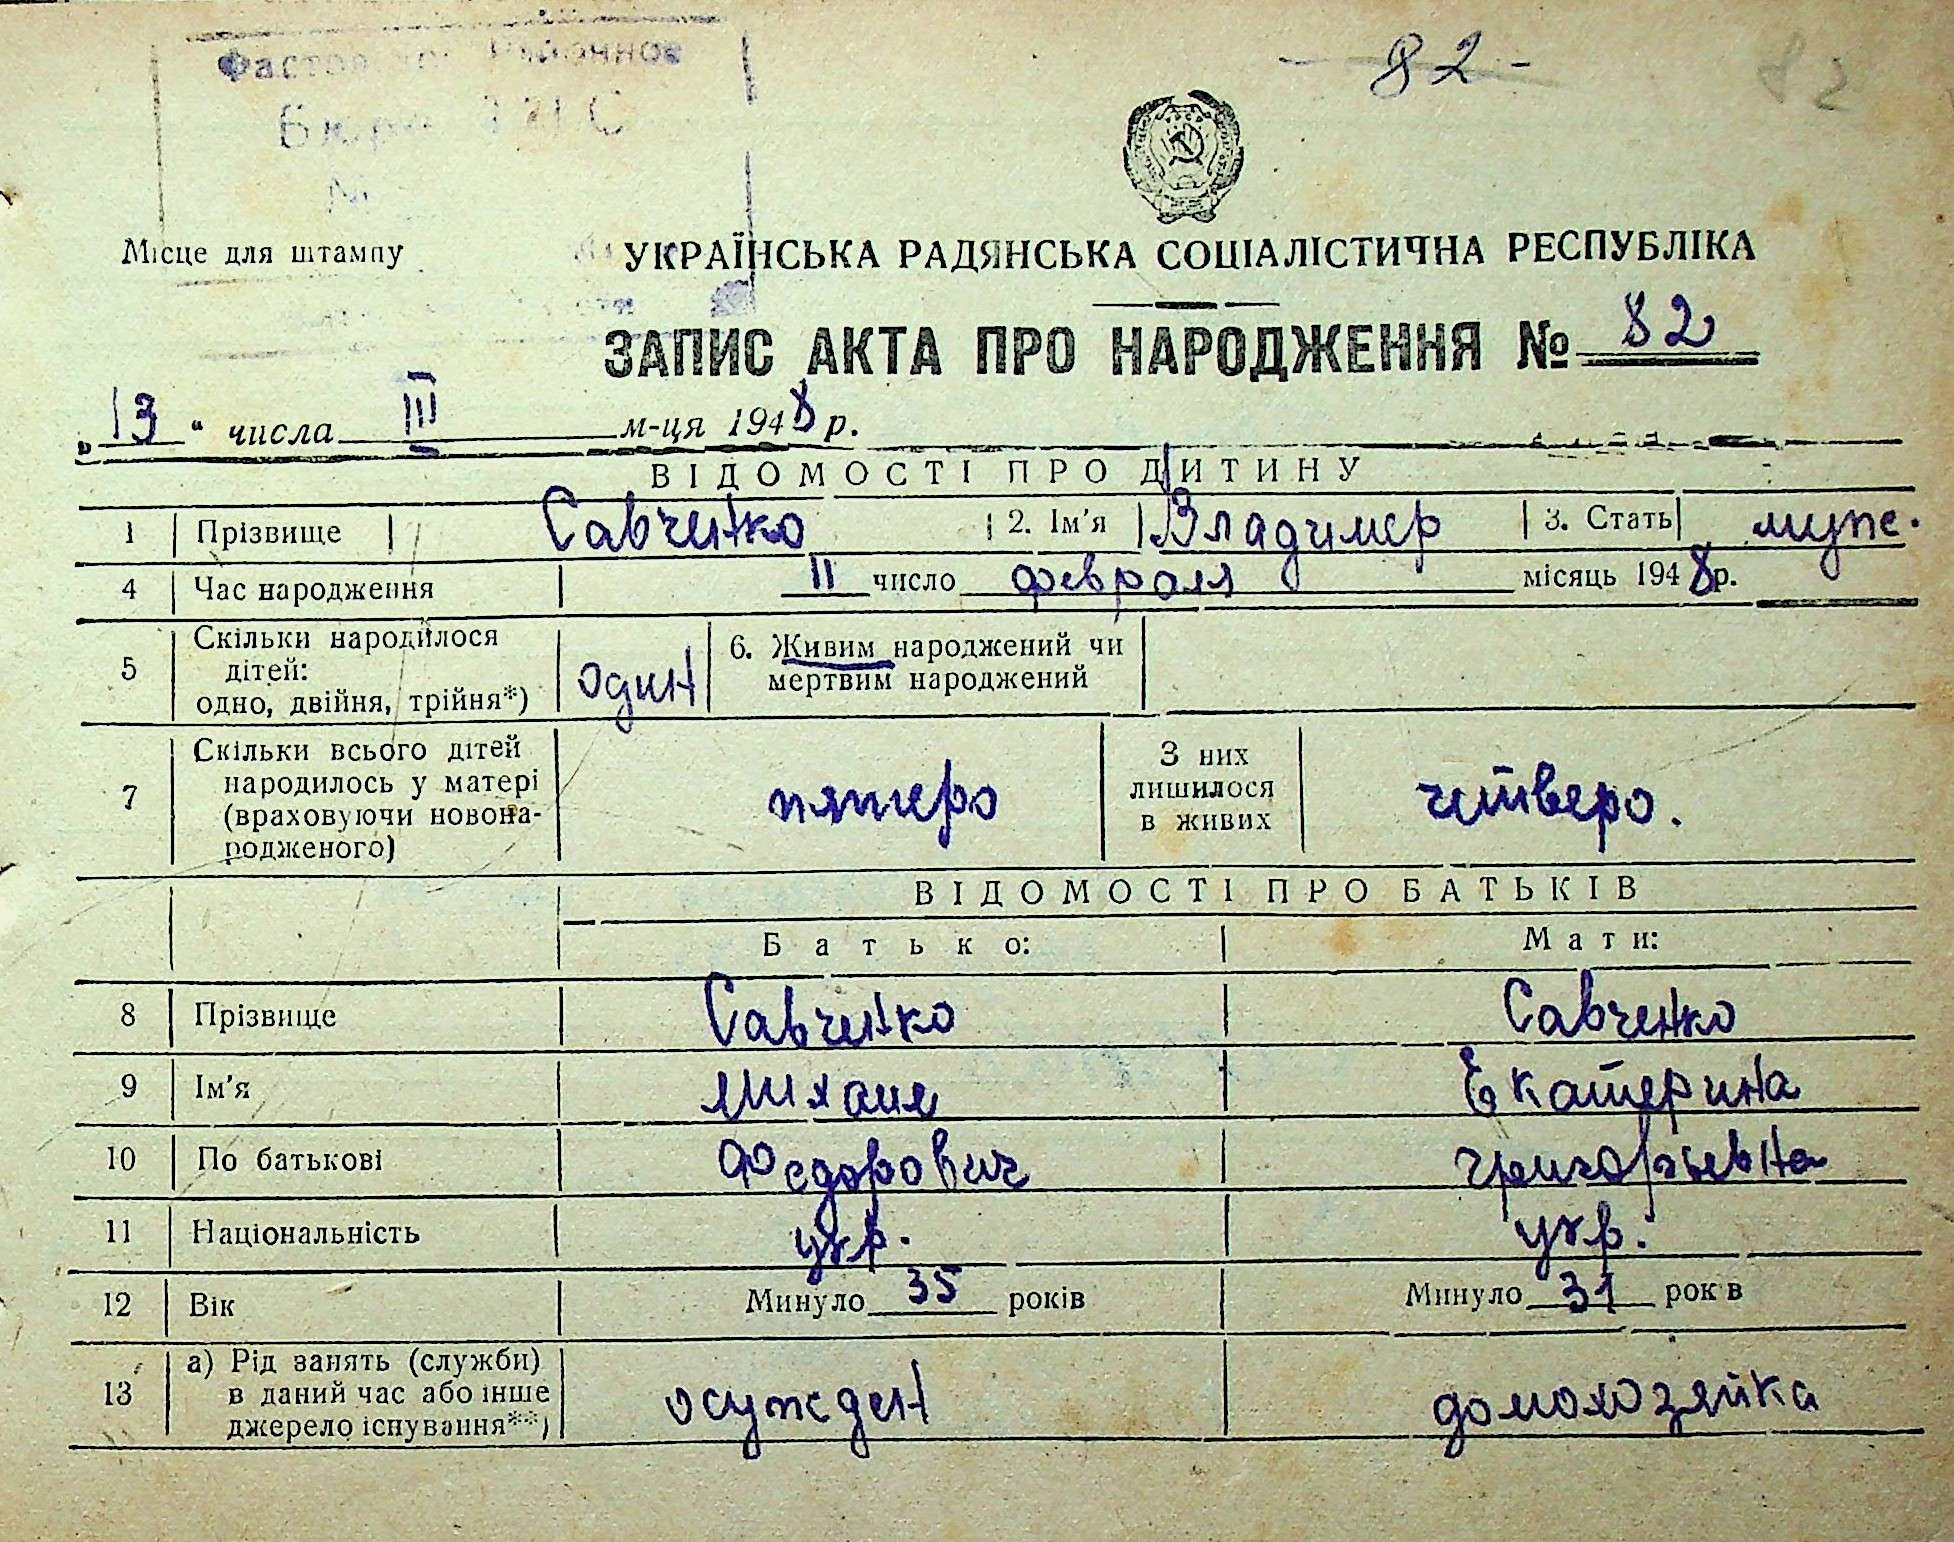 82
82
Бюро ЗАГС
Місце для штампу
УКРАЇНСЬКА РАДЯНСЬКА СОЦІАЛІСТИЧНА РЕСПУБЛІКА
ЗАПИС АКТА ПРО НАРОДЖЕННЯ № 82
„13“ числа III м-ця 1948 р.
ВІДОМОСТІ ПРО ДИТИНУ
1 Прізвище Савченко 2. Ім'я Владимир 3. Стать муж.
4 Час народження 11 число февраля місяць 1948р.
5 Скільки народилося дітей: одно, двійня, трійня*) один 6. Живим народжений чи мертвим народжений
7 Скільки всього дітей народилось у матері (враховуючи новонародженого) пятеро З них лишилося в живих четверо.
ВІДОМОСТІ ПРО БАТЬКІВ
Батько: Мати:
8 Прізвище Савченко Савченко
9 Ім'я Михаил Екатерина
10 По батькові Федорович Григорьевна
11 Національність укр. укр.
12 Вік Минуло 35 років Минуло 31 рок в
13 а) Рід занять (служби) в даний час або інше джерело існування**) осужден домохозяйка